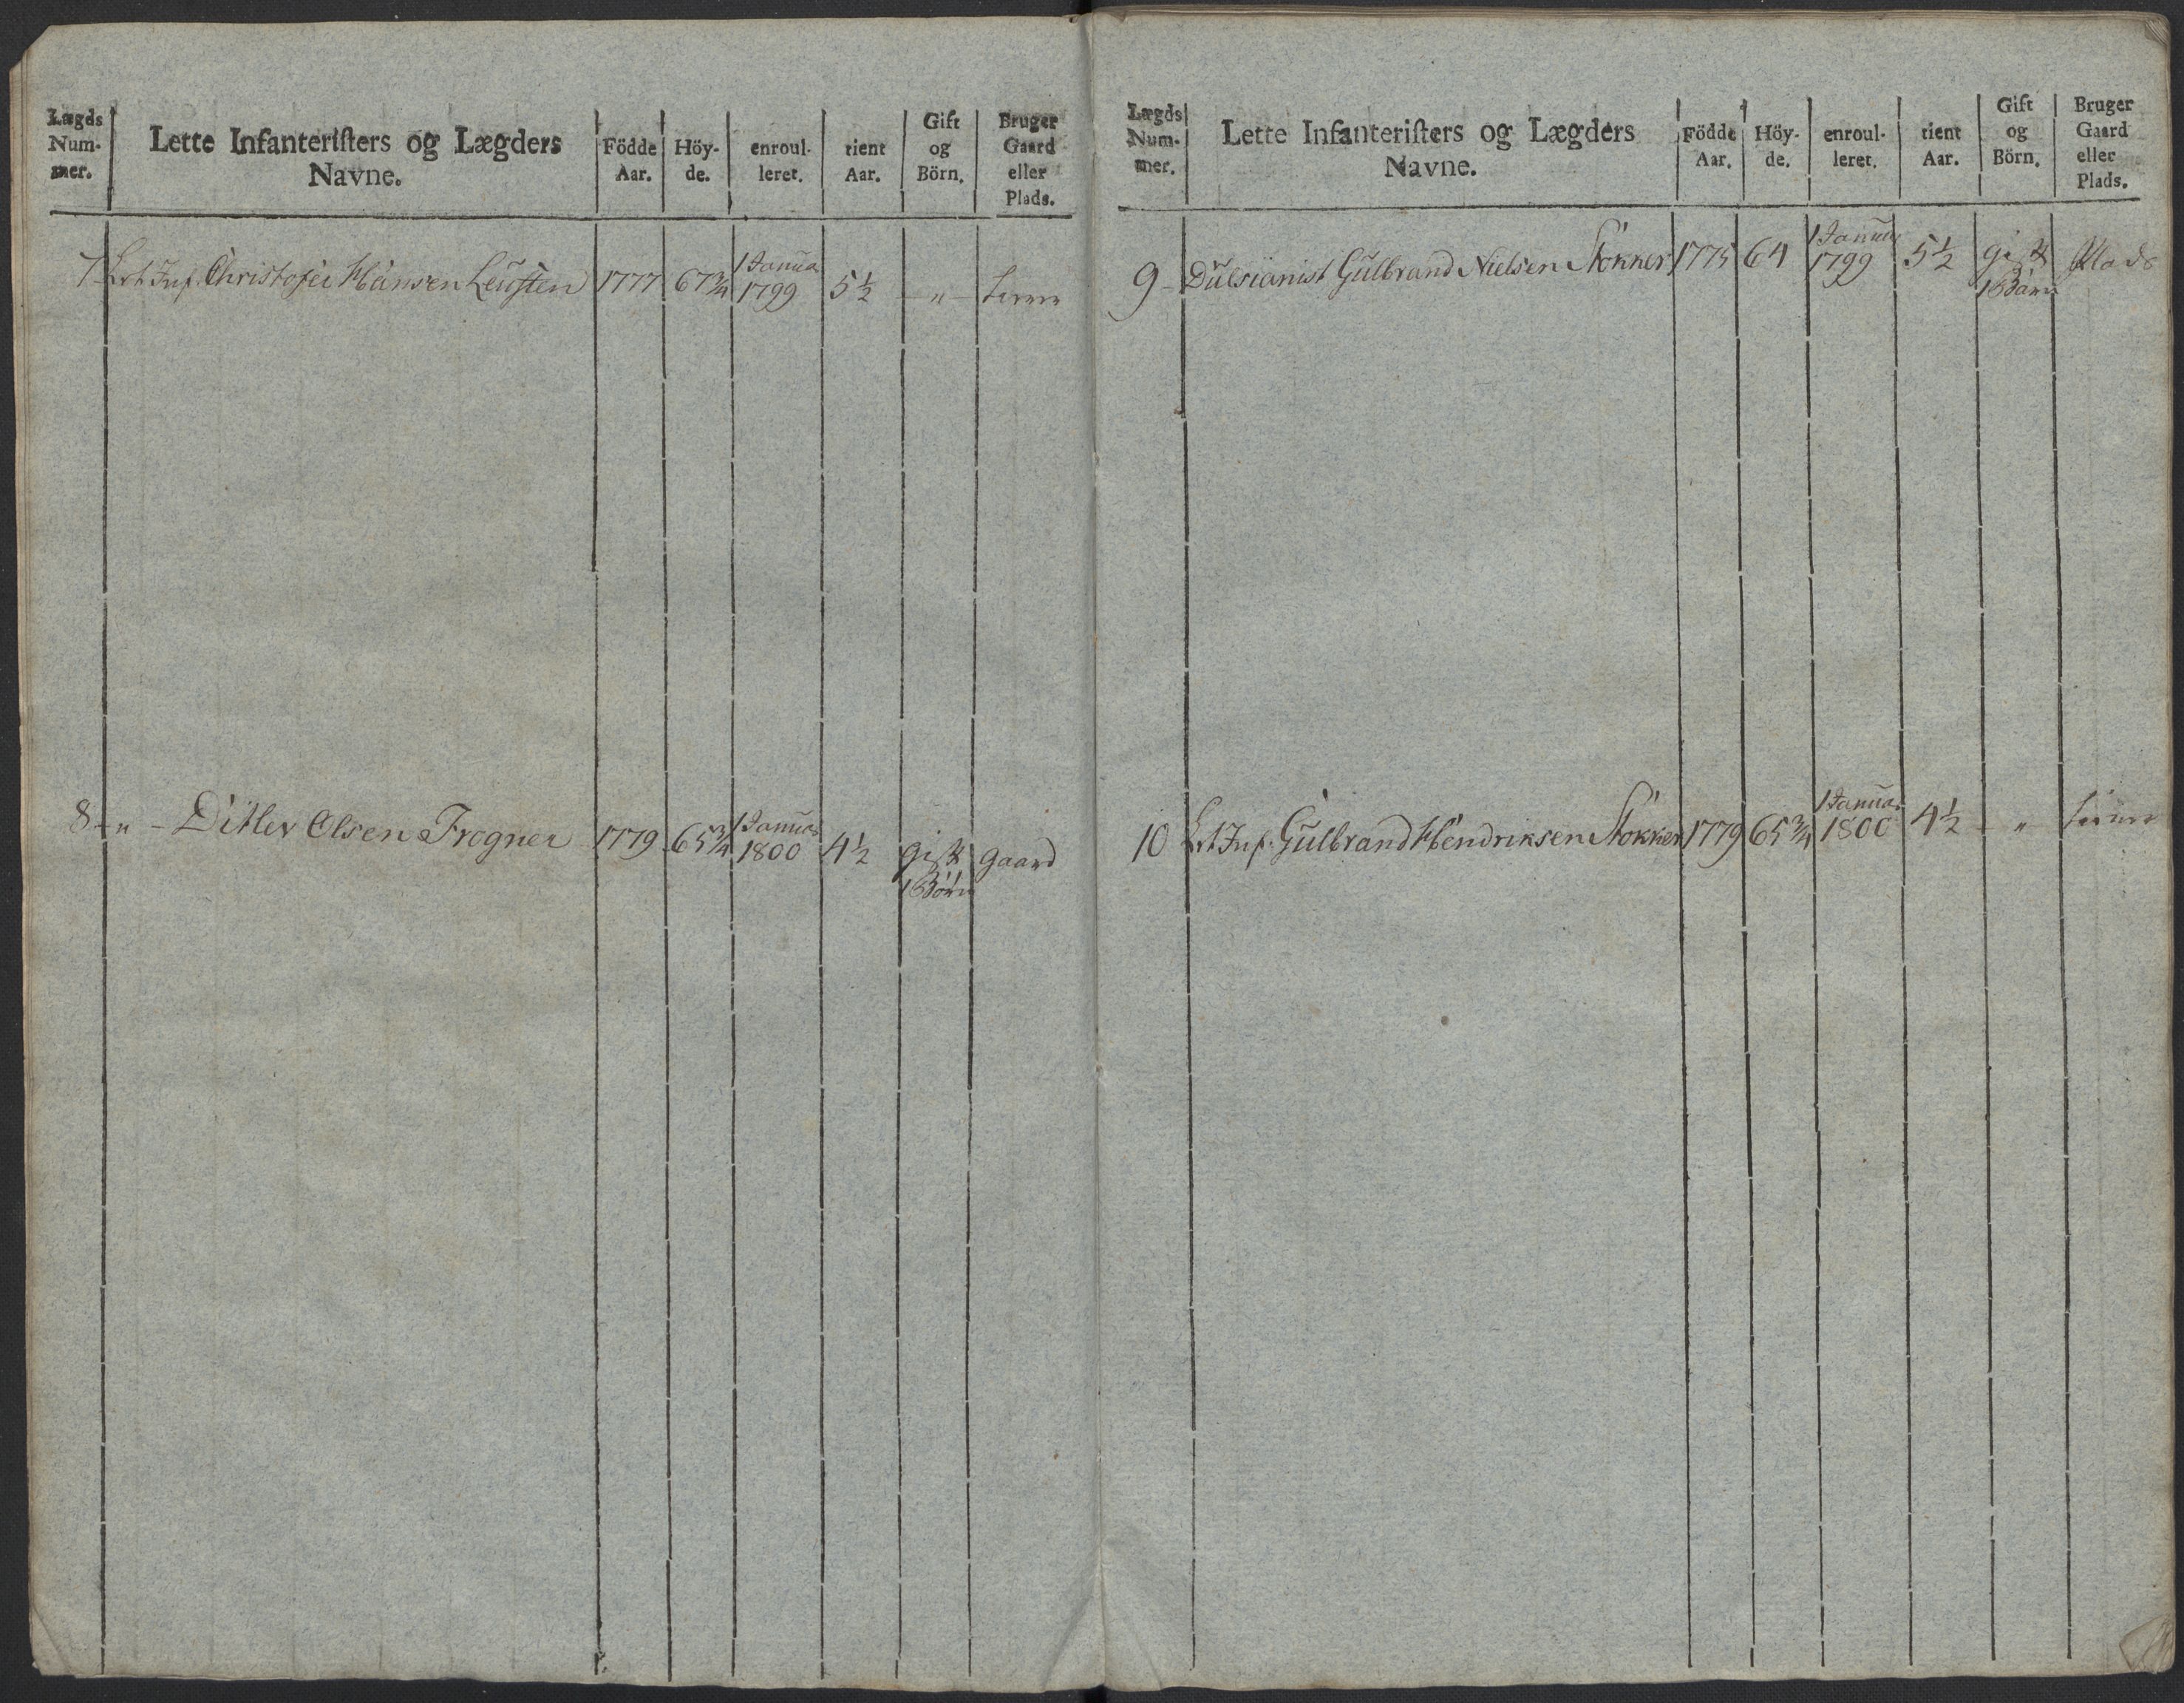 Lægds Num- mer.
Lette Infanteristers og Lægders Navne.
Födde Aar.
Höy- de.
enroul- leret.
tient Aar.
Gift og Börn.
Bruger Gaard eller Plads.
7 Let Inf. Christofer Hansen 1777 67¾ 1 Janua 1799 5½ - " -
8 - " - Ditlev Olsen Frogner 1779 65¾ 1 Janua 1800 4½ gift 1 Börn gaard
Lægds Num- mer.
Lette Infanteristers og Lægders Navne.
Födde Aar.
Höy- de.
enroul- leret.
tient Aar.
Gift og Börn.
Bruger Gaard eller Plads.
9 - Gulbrand Nielsen Stokker 1775 64 1 Janua 1799 5½ gift 1 Barn Plads
10 Let Inf. Gulbrand Hendriksen Stokker 1779 65¾ 1 Janua 1800 4½ - " -